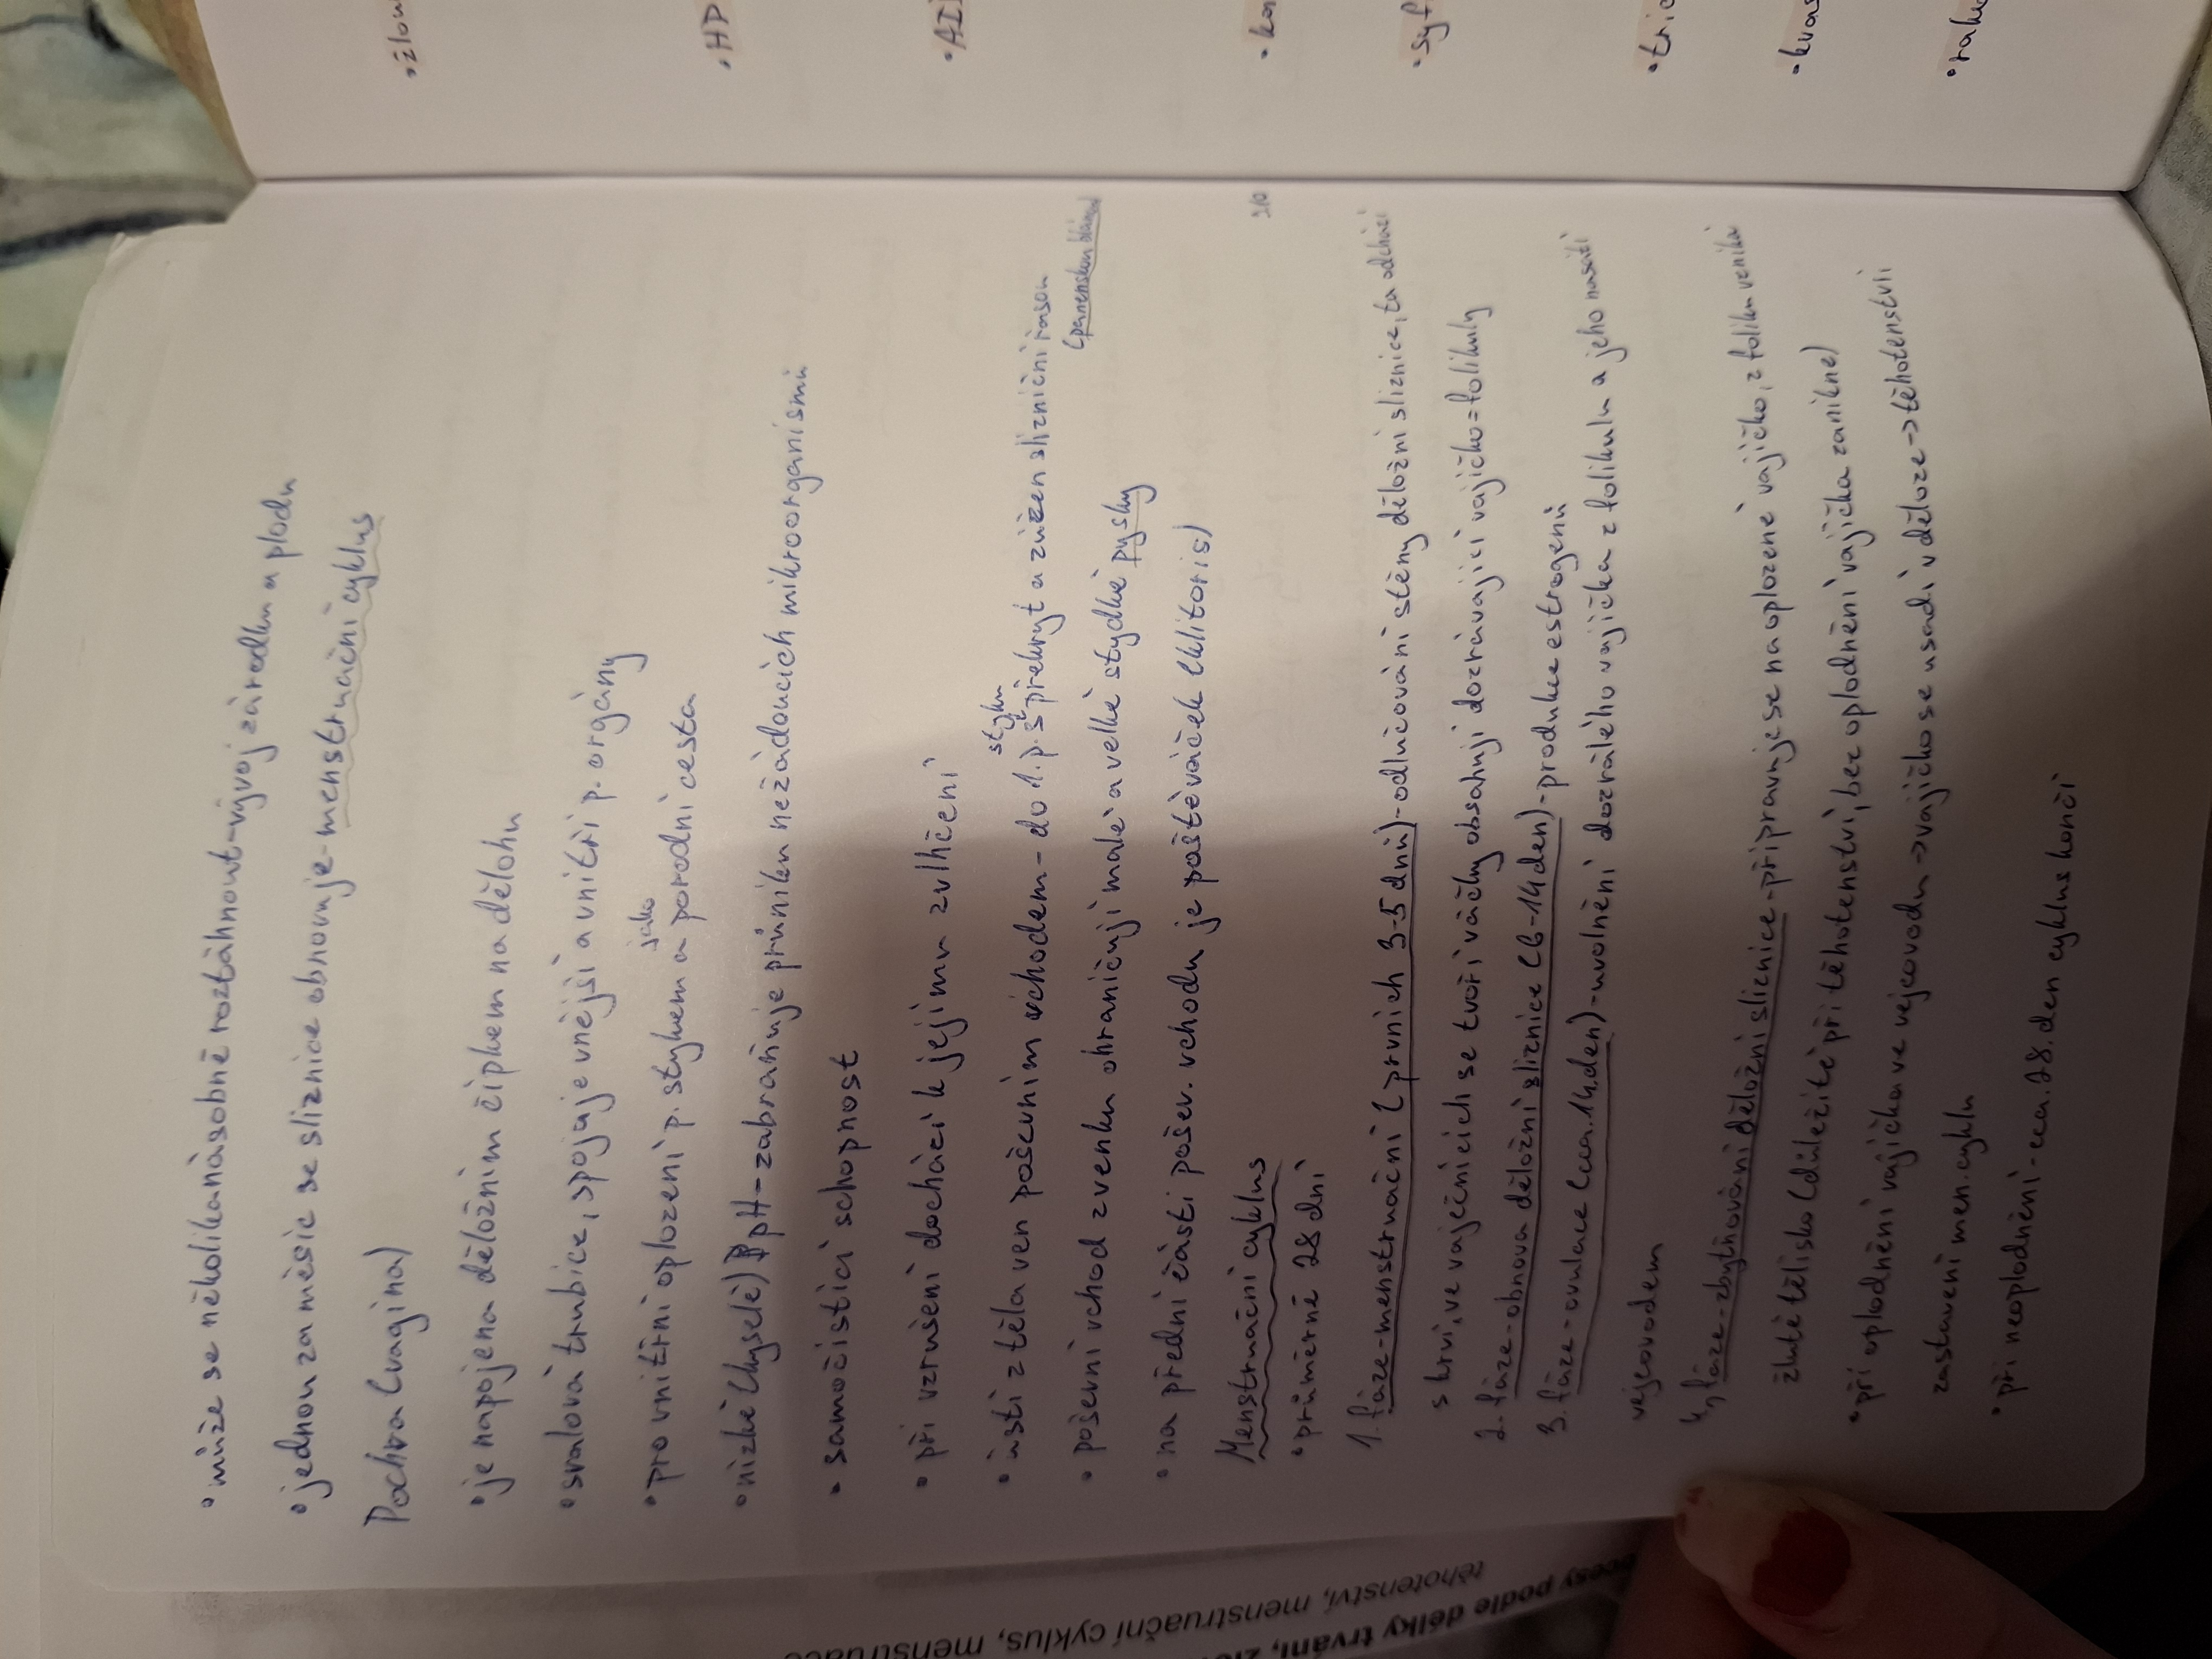 •může se několikanásobně roztáhnout-vývoj zárodku a plodu
•jednou za měsíc se sliznice obnovuje-menstruační cyklus
Pochva (vagina)
•je napojena děložním čípkem na dělohu
•svalová trubice, spojuje vnější a vnitří p. orgány
•pro vnitřní oplození p. stykem a jako porodní cesta
•nízké (kyselé) pH-zabraňuje průniku nežádoucích mikroorganismů
•samočistící schopnost
•při vzrušení dochází k jejímu zvlhčení
•ústí z těla ven poševním vchodem-do 1. p. styku překryt a zúžen slizniční řasou
(panenskou blánou)
•poševní vchod zvenku ohraničují malé a velké stydké pysky
•na přední části pošev. vchodu je poštěváček (klitoris)
Menstruační cyklus
•průměrně 28 dní
1. fáze-menstruační (prvních 3-5 dnů)-odlučování stěny děložní sliznice, ta odchází
s krví, ve vaječnících se tvoří váčky obsahují dozrávající vajíčko=folikuly
2. fáze-obnova děložní sliznice (6-14 den)-produkce estrogenů
3. fáze-ovulace (cca. 14. den)-uvolnění dozrálého vajíčka z folikulu a jeho nasátí
vejcovodem
4, fáze-zbytňování děložní sliznice-připravuje se na oplozené vajíčko, z foliku vzniká
žluté tělísko (důležité při těhotenství, bez oplodnění vajíčka zanikne)
•při oplodnění vajíčka ve vejcovodu->vajíčko se usadí v děloze->těhotenství
zastavení men. cyklu
•při neoplodnění-cca. 28. den cyklus končí
podle délky trvání,
těhotenství, menstruační cyklus,
•HP
•ka
•syf
•tric
•kvas